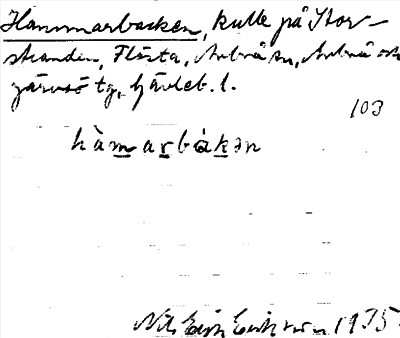 Hammarbacken, kulle på Stor-
stranden, Flästa, Arbrå sn, Arbrå och
Järvsö tg, Gävleb. l.
103
hàmarbàkən
Nils Erik Eriksson 1935.